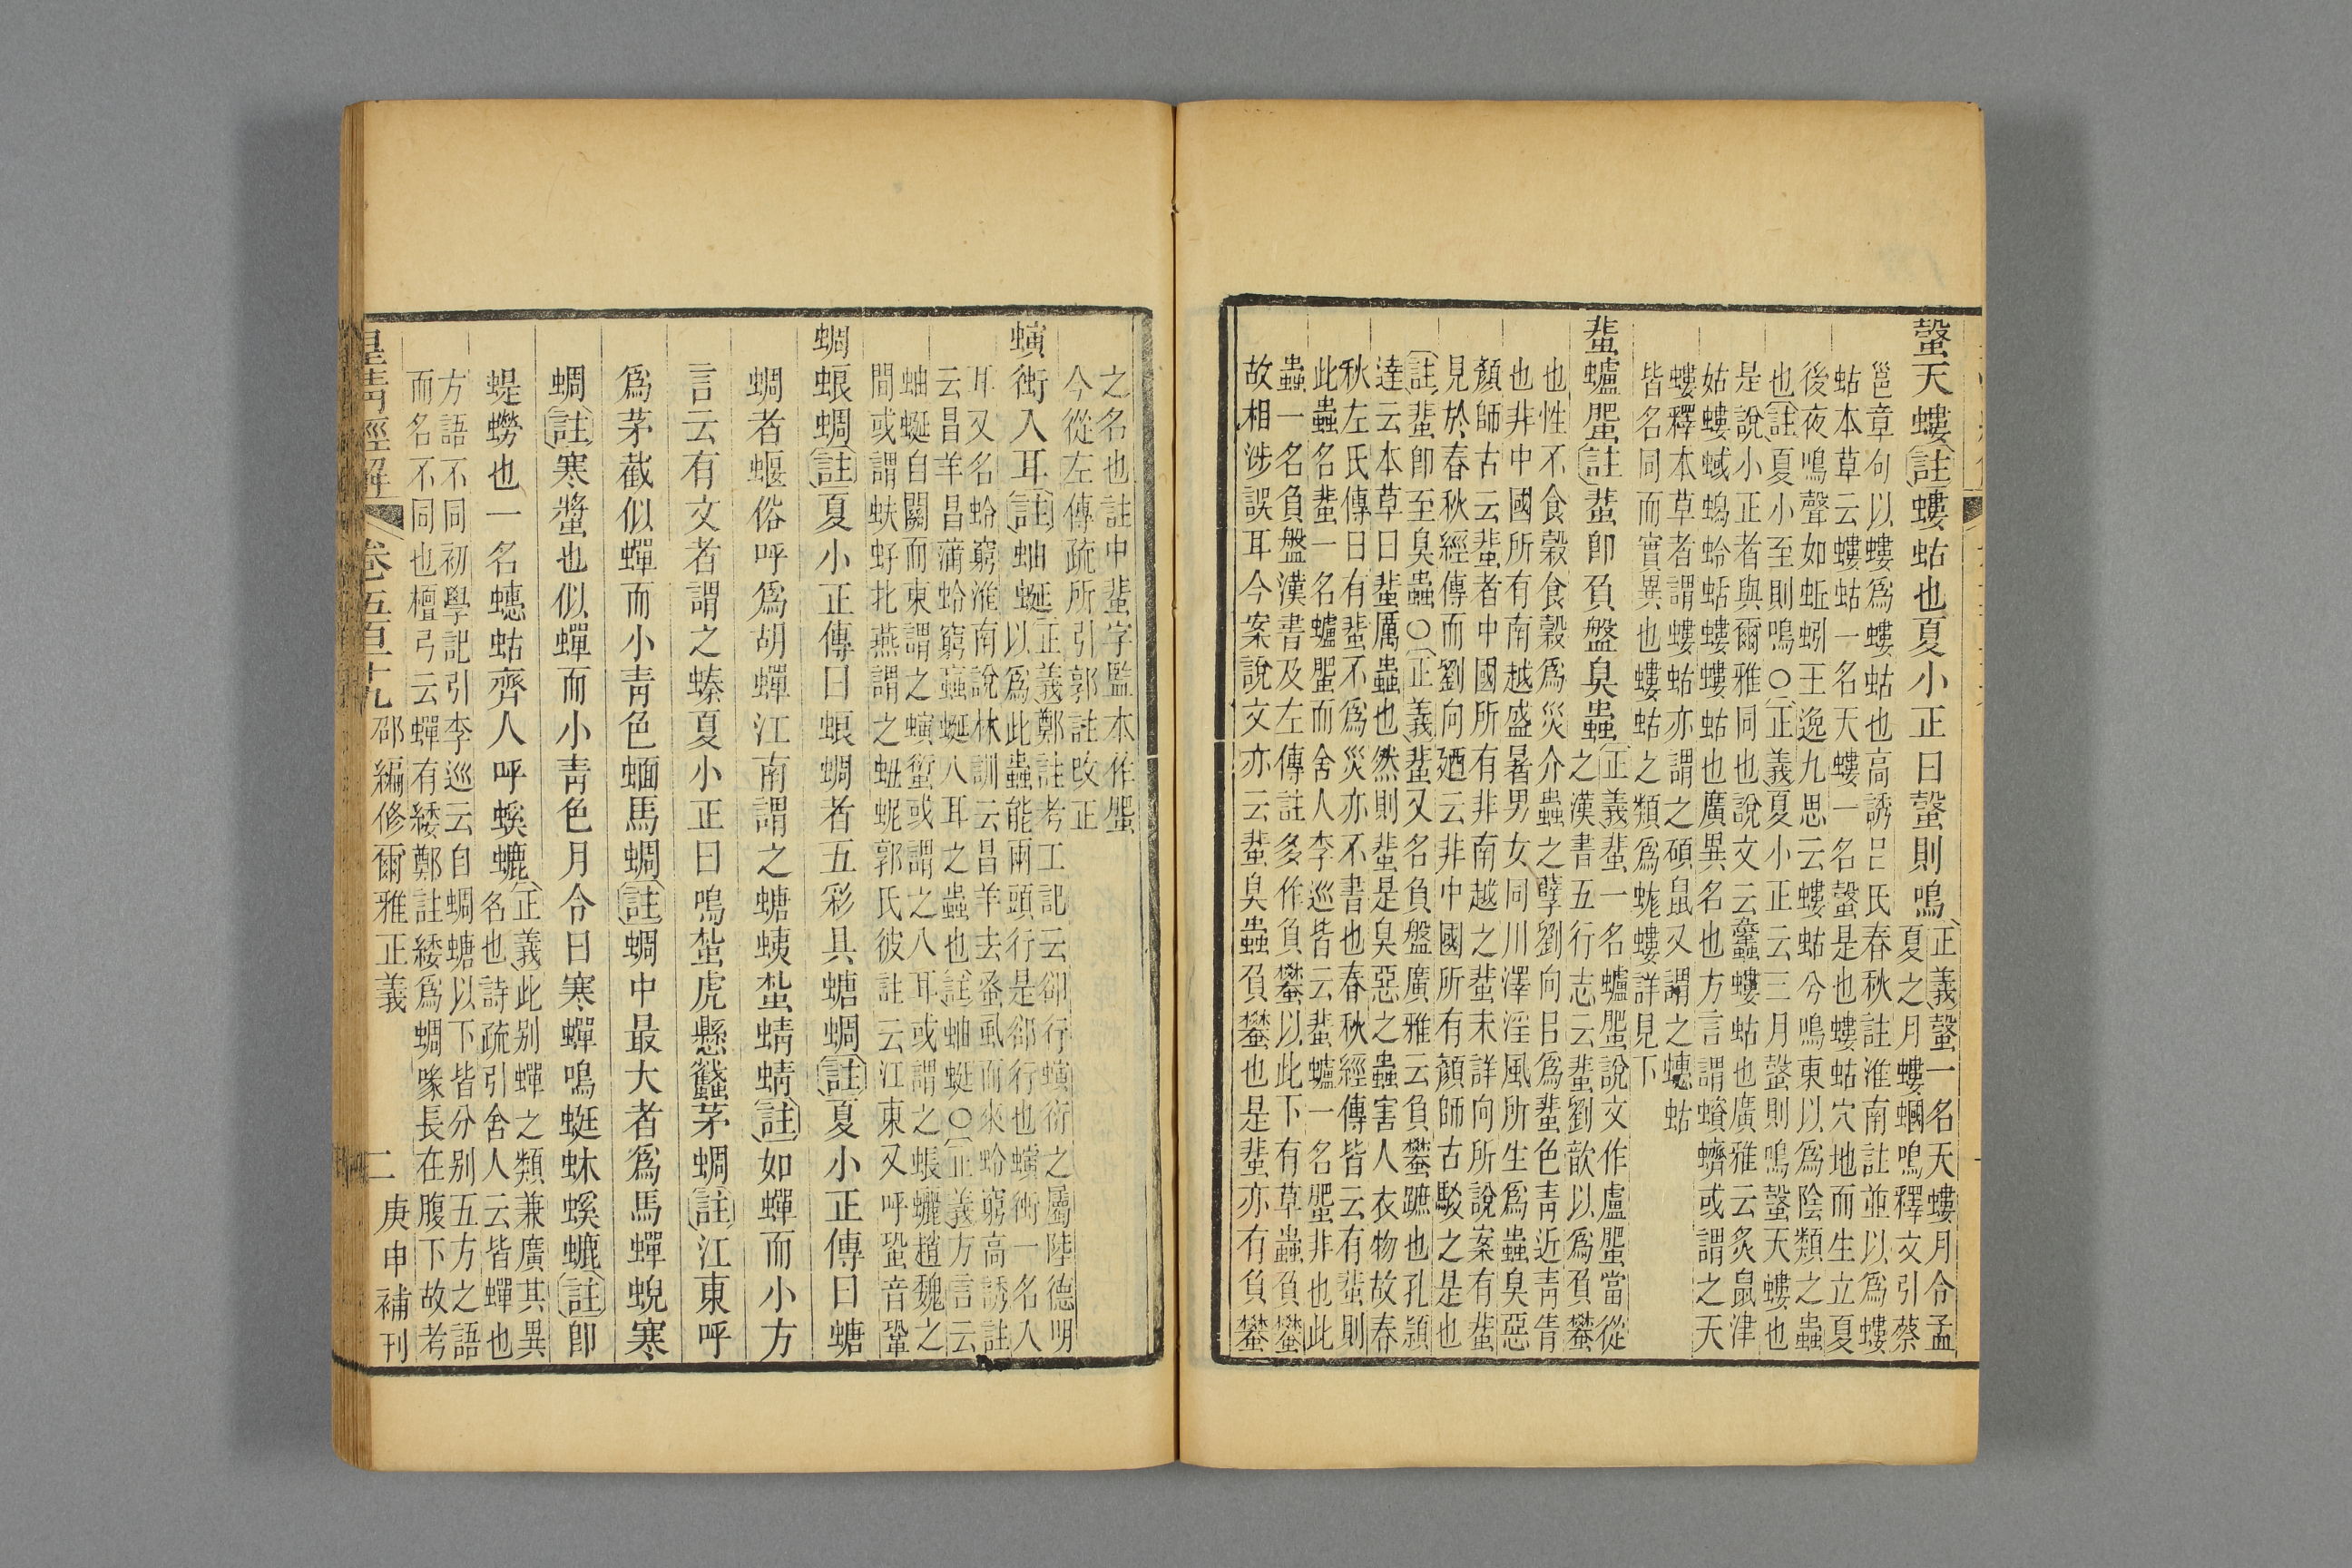 螜天螻註螻蛄也夏小正曰螜則鳴正義螜一名天螻月令孟
夏之月螻蟈鳴釋文引蔡
邕章句以螻爲螻蛄也高誘呂氏春秋註淮南註並以爲螻
蛄本草云螻蛄一名天螻一名螜是也螻蛄穴地而生立夏
後夜鳴聲如蚯蚓王逸九思云螻蛄兮鳴東以爲陰類之蟲
也註夏小至則鳴○正義夏小正云三月螜則鳴螜天螻也
是說小正者與爾雅同也說文云蠹螻蛄也廣雅云炙鼠津
姑螻蜮蟓蛉蛞螻螻蛄也廣異名也方言謂蠀螬或謂之天
螻釋本草者謂螻蛄亦謂之碩鼠又謂之蟪蛄
皆名同而實異也螻蛄之類爲蚍螻詳見下
蜚蠦蜰註蜚卽負盤臭蟲正義蜚一名蠦蜰說文作盧蜰當從
之漢書五行志云蜚劉歆以爲負蠜
也性不食穀食穀爲災介蟲之孽劉向㠯爲蜚色青近青眚
也非中國所有南越盛暑男女同川澤淫風所生爲蟲臭惡
顏師古云蜚者中國所有非南越之蜚未詳向所說案有蜚
見於春秋經傳而劉向廼云非中國所有顏師古駁之是也
註蜚卽至臭蟲○正義蜚又名負盤廣雅云負蠜蟅也孔頴
達云本草曰蜚厲蟲也然則蜚是臭惡之蟲害人衣物故春
秋左氏傳曰有蜚不爲災亦不書也春秋經傳皆云有蜚則
此蟲名蜚一名蠦蜰而舍人李巡皆云蜚蠦一名蜰非也此
蟲一名負盤漢書及左傳註多作負蠜以此下有草蟲負蠜
故相涉誤耳今案說文亦云蜚臭蟲負蠜也是蜚亦有負蠜
之名也註中蜚字監本作蜰
今從左傳疏所引郭註改正
螾衏入耳註蚰蜒正義鄭註考工記云卻行螾衍之屬陸德明
以爲此蟲能兩頭行是卻行也螾衏一名入
耳又名蛉窮淮南說林訓云昌羊去蚤虱而來蛉窮高誘註
云昌羊昌蒲蛉窮蜒八耳之蟲也註蚰蜒○正義方言云
蚰蜒自關而東謂之螾䘆或謂之入耳或謂之䗅䗽趙魏之
間或謂蚨虶北燕謂之䖡蚭郭氏彼註云江東又呼蛩音鞏
蜩蜋蜩註夏小正傳曰蜋蜩者五彩具螗蜩註夏小正傳曰螗
蜩者蝘俗呼爲胡蟬江南謂之螗蛦蚻蜻蜻註如蟬而小方
言云有文者謂之螓夏小正曰鳴蚻虎懸蠽茅蜩註江東呼
爲茅截似蟬而小青色蝒馬蜩註蜩中最大者爲馬蟬蜺寒
蜩註寒螿也似蟬而小青色月令曰寒蟬鳴蜓蚞螇螰註卽
蝭蟧也一名蟪蛄齊人呼螇螰正義此别蟬之類兼廣其異
名也詩疏引舍人云皆蟬也
方語不同初學記引李巡云自蜩螗以下皆分别五方之語
而名不同也檀弓云蟬有緌鄭註緌爲蜩喙長在腹下故考
皇清經解 卷五百十九 邵編修爾雅正義 二 庚申補刊